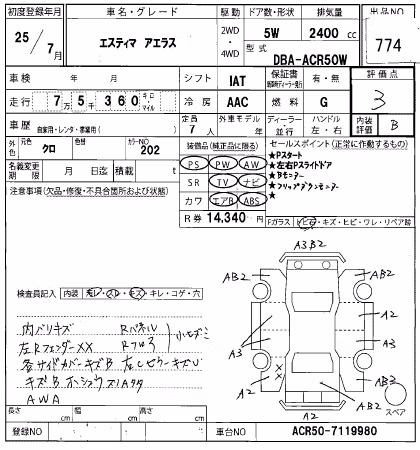 初度登録年月 車名・グレード 駆動 ドア数・形状 排気量 出品NO
25/7月 エスティマ アエラス 2WD・4WD 5W 2400 cc 774
型式 DBA-ACR50W
車検 年 月 シフト IAT 保証書 有・無 評価点
走行 7万5千360 キロ・マイル 冷房 AAC 燃料 G 3
車歴 自家用・レンタ・事業用( ) 定員 7人 外車モデル 年 ディーラー・並行 ハンドル 左・右 内装評価 B
外色 元色 クロ 色替 カラーNO 202 装備品(純正品に限る) セールスポイント(正常に作動するもの)
名義変更期限 月 日迄 積載 t PS PW AW ★Pスタート
注意事項(欠品・修復・不具合箇所および状態) SR TV ナビ ★左右Pスライドドア
カワ エアB ABS ★Bモニター
★フリップダウンモニター
★
R券 14,340 円 Fガラス トビ石・キズ・ヒビ・ワレ・リペア跡
A3B2
AB2 AB2
検査員記入 内装 ヨレ・スレ・キズ・キレ・コゲ・穴
内ハリキズ Rパネル
左Rフェンダー××  Rフロア 小ヒズミ
A3 A2
A3
キズB
AWA
A2 AB2 AB2
A2
スペア
長さ cm 幅 cm 高さ cm
登録NO 車台NO ACR50-7119980